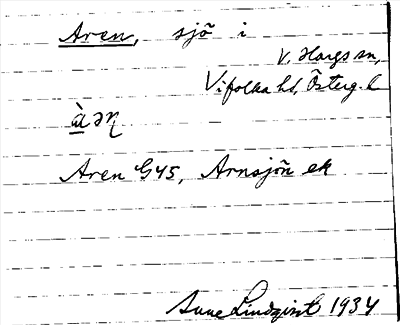 Aren, sjö i
V. Hargs sn,
Vifolka hd, Österg. l
àən
Aren G45, Arnsjön ek
Sune Lindqvist 1934